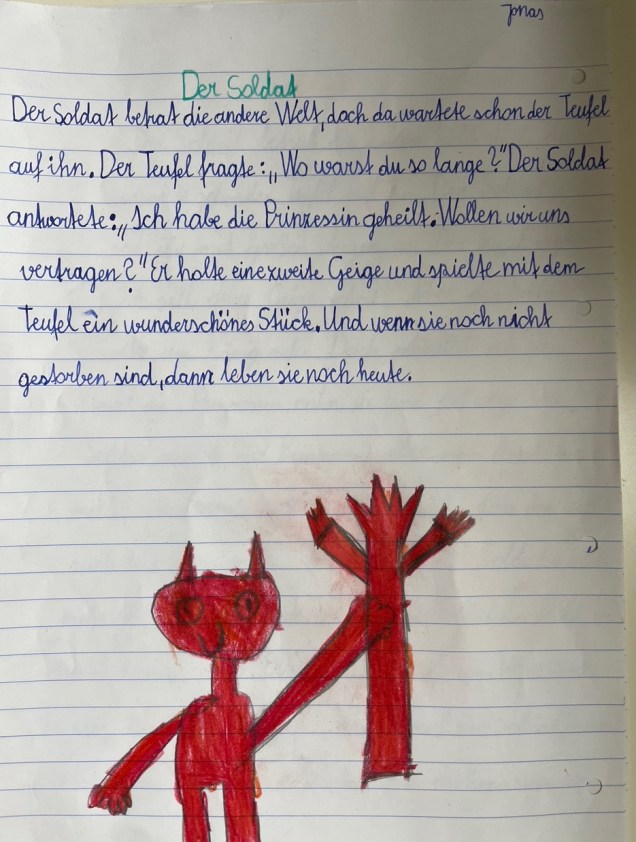 Jonas
Der Soldat
Der Soldat betrat die andere Welt, doch da wartete schon der Teufel
auf ihn. Der Teufel fragte: „Wo warst du so lange?" Der Soldat
antwortete: „Ich habe die Prinzessin geheilt. Wollen wir uns
vertragen?" Er holte eine zweite Geige und spielte mit dem
Teufel ein wunderschönes Stück. Und wenn sie noch nicht
gestorben sind, dann leben sie noch heute.